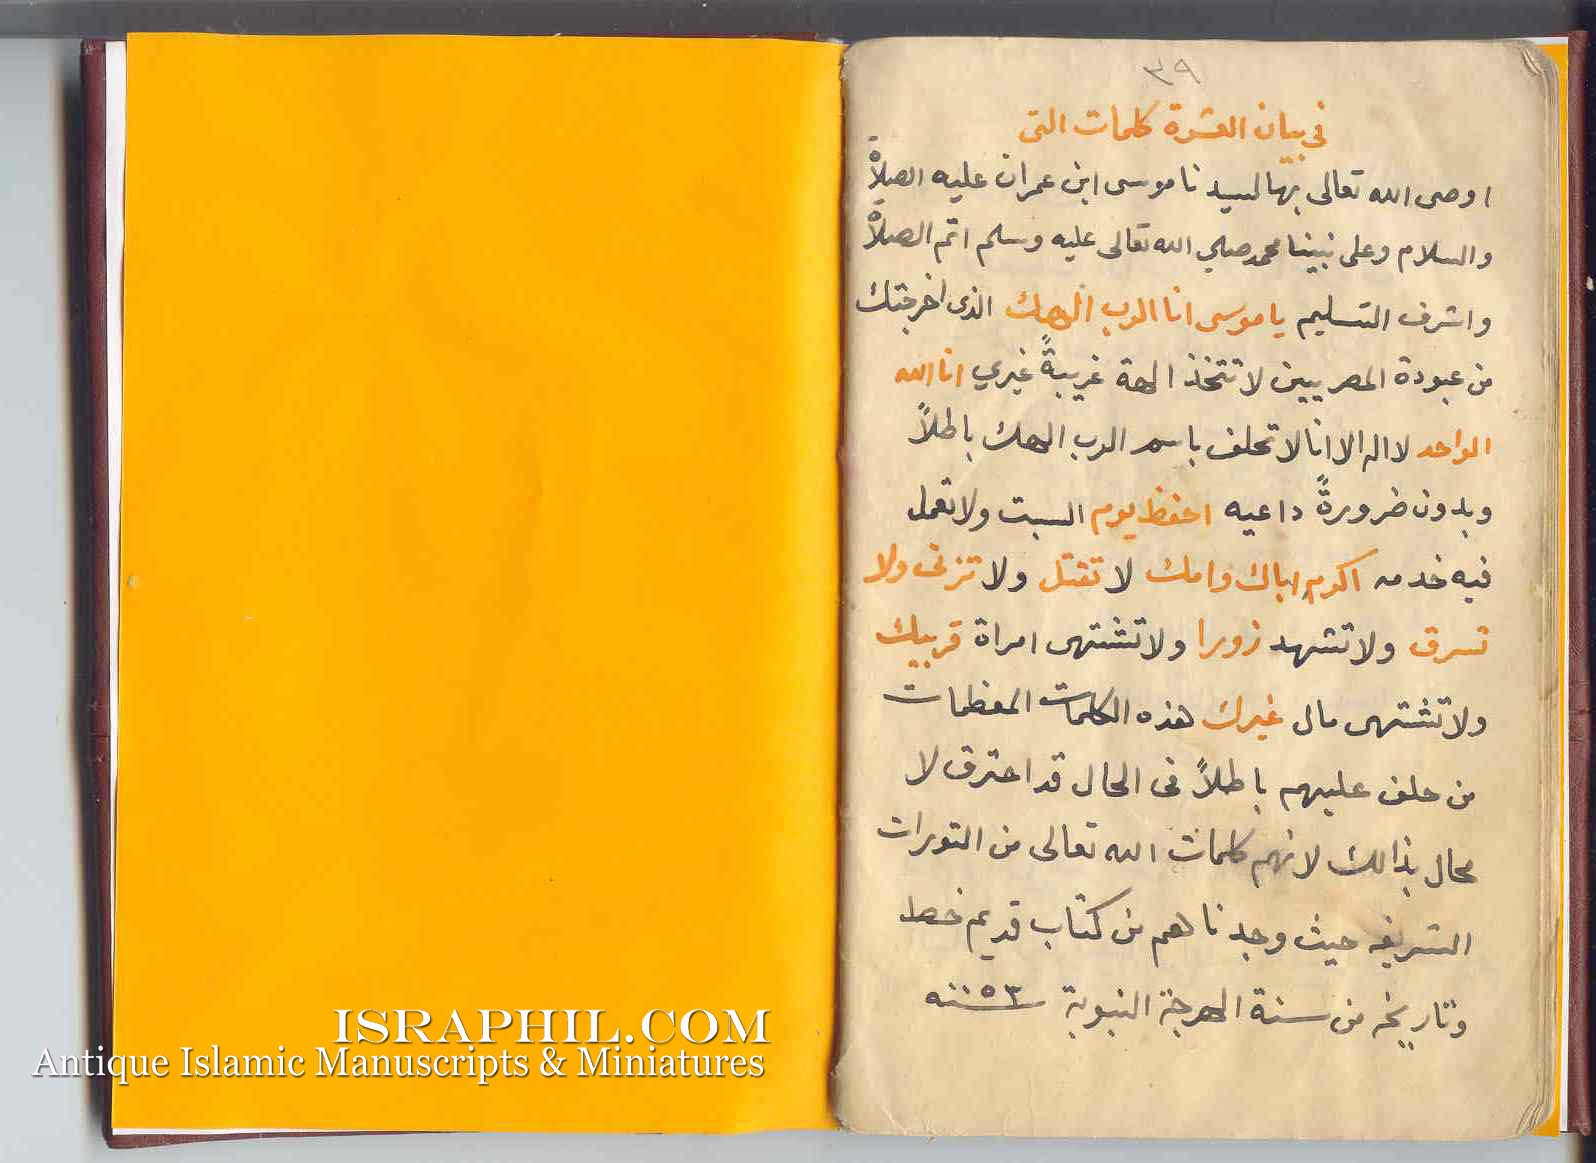 ٣٩
في بيان العشرة كلمات التى
اوصى الله تعالى بها لسيدنا موسى ابن عمران عليه الصلاة
والسلام وعلى نبينا محمد صلي الله تعالى عليه وسلم اتم الصلاة
واشرف التسليم ياموسى انا الرب الهك الذى اخرجتك
من عبودة المصريين لا تتخذ الهة غريبةً غيري انا الله
الواحد لا اله الا انا لا تحلف باسم الرب الهك باطلاً
وبدون ضرورةً داعيه احفظ يوم السبت ولا تعمل
فيه خدمه اكرم اباك وامك لا تقتل ولا تزنى ولا
تسرق ولا تشهد زورا ولا تشتهى امراة قريبك
ولا تشتهى مال غيرك هذه الكلمات المعظمات
من حلف عليهم باطلاً فى الحال قد احترق لا
محال بذالك لانهم كلمات الله تعالى من التورات
الشريفه حيث وجدناهم من كتاب قديم خط
وتاريخه من سنة الهجرة النبوية سنه
ISRAPHIL.COM
Antique Islamic Manuscripts & Miniatures